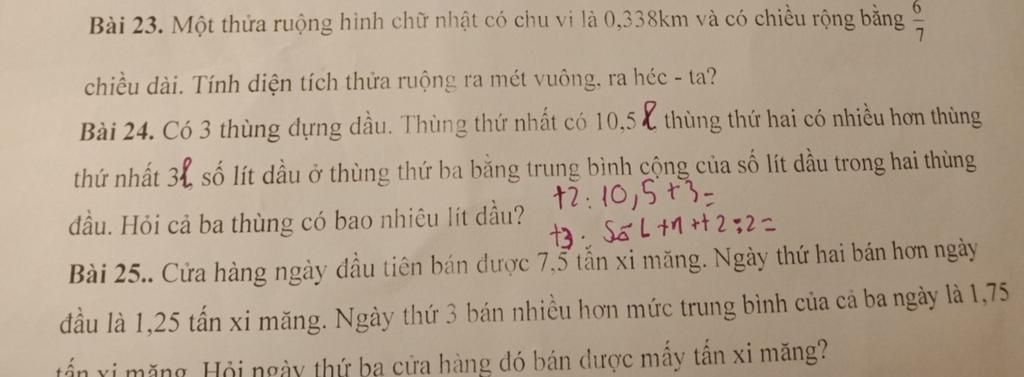 Bài 23. Một thửa ruộng hình chữ nhật có chu vi là 0,338km và có chiều rộng bằng 6/7
chiều dài. Tính diện tích thửa ruộng ra mét vuông, ra héc - ta?
Bài 24. Có 3 thùng đựng dầu. Thùng thứ nhất có 10,5 l thùng thứ hai có nhiều hơn thùng
thứ nhất 3l, số lít dầu ở thùng thứ ba bằng trung bình cộng của số lít dầu trong hai thùng
đầu. Hỏi cả ba thùng có bao nhiêu lít dầu?
t2: 10,5 + 3 =
t3: Số L t1 + t2 : 2 =
Bài 25.. Cửa hàng ngày đầu tiên bán được 7,5 tấn xi măng. Ngày thứ hai bán hơn ngày
đầu là 1,25 tấn xi măng. Ngày thứ 3 bán nhiều hơn mức trung bình của cả ba ngày là 1,75
tấn xi măng. Hỏi ngày thứ ba cửa hàng đó bán được mấy tấn xi măng?